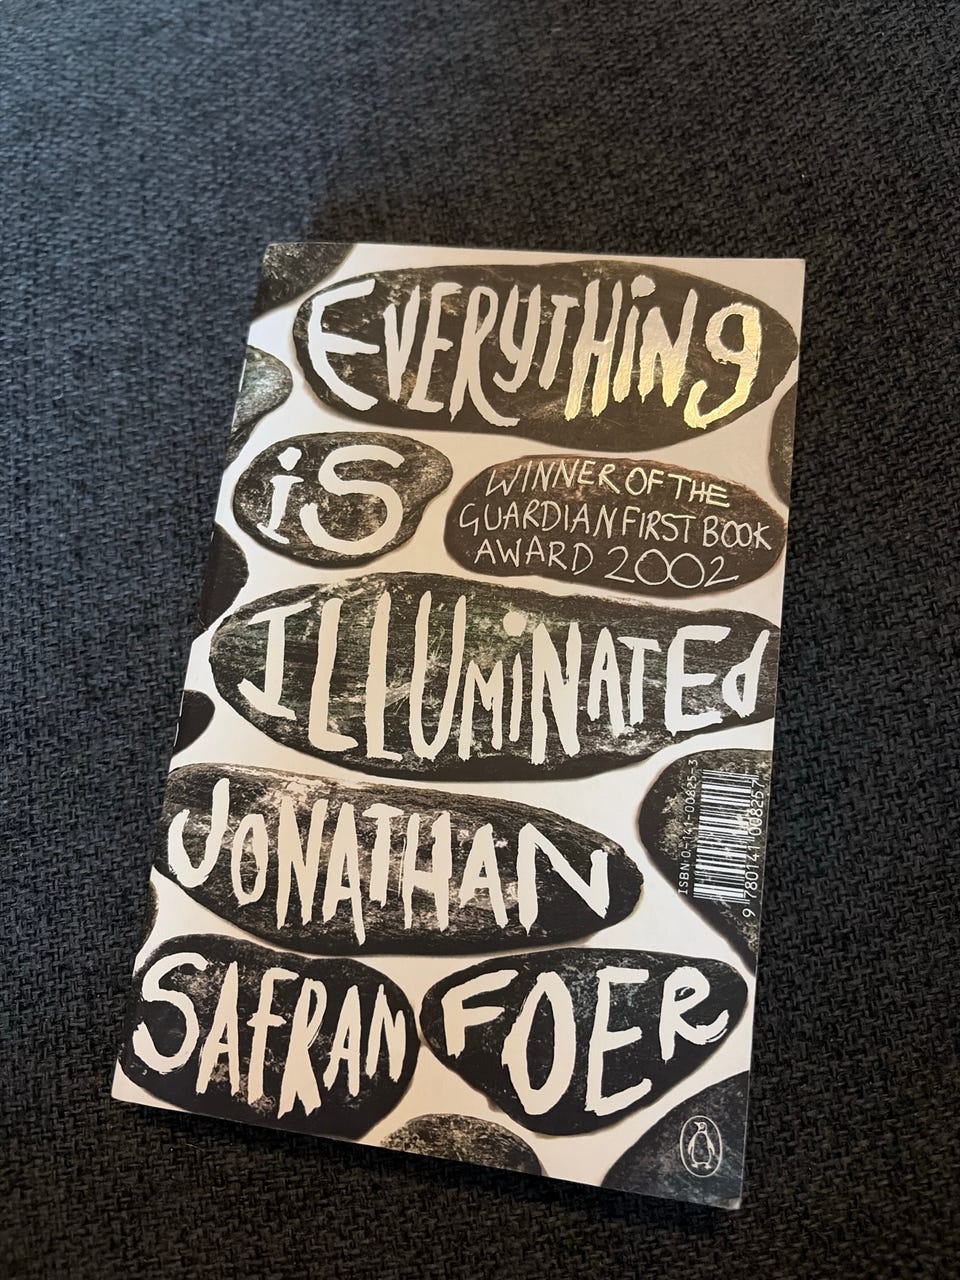 EVERYTHiNg
iS
WINNER OF THE
GUARDIAN FIRST BOOK
AWARD 2002
ILLUmiNATEd
JONATHAN
SAFRAN FOER
ISBN 0-141-00825-3
9 780141 008257